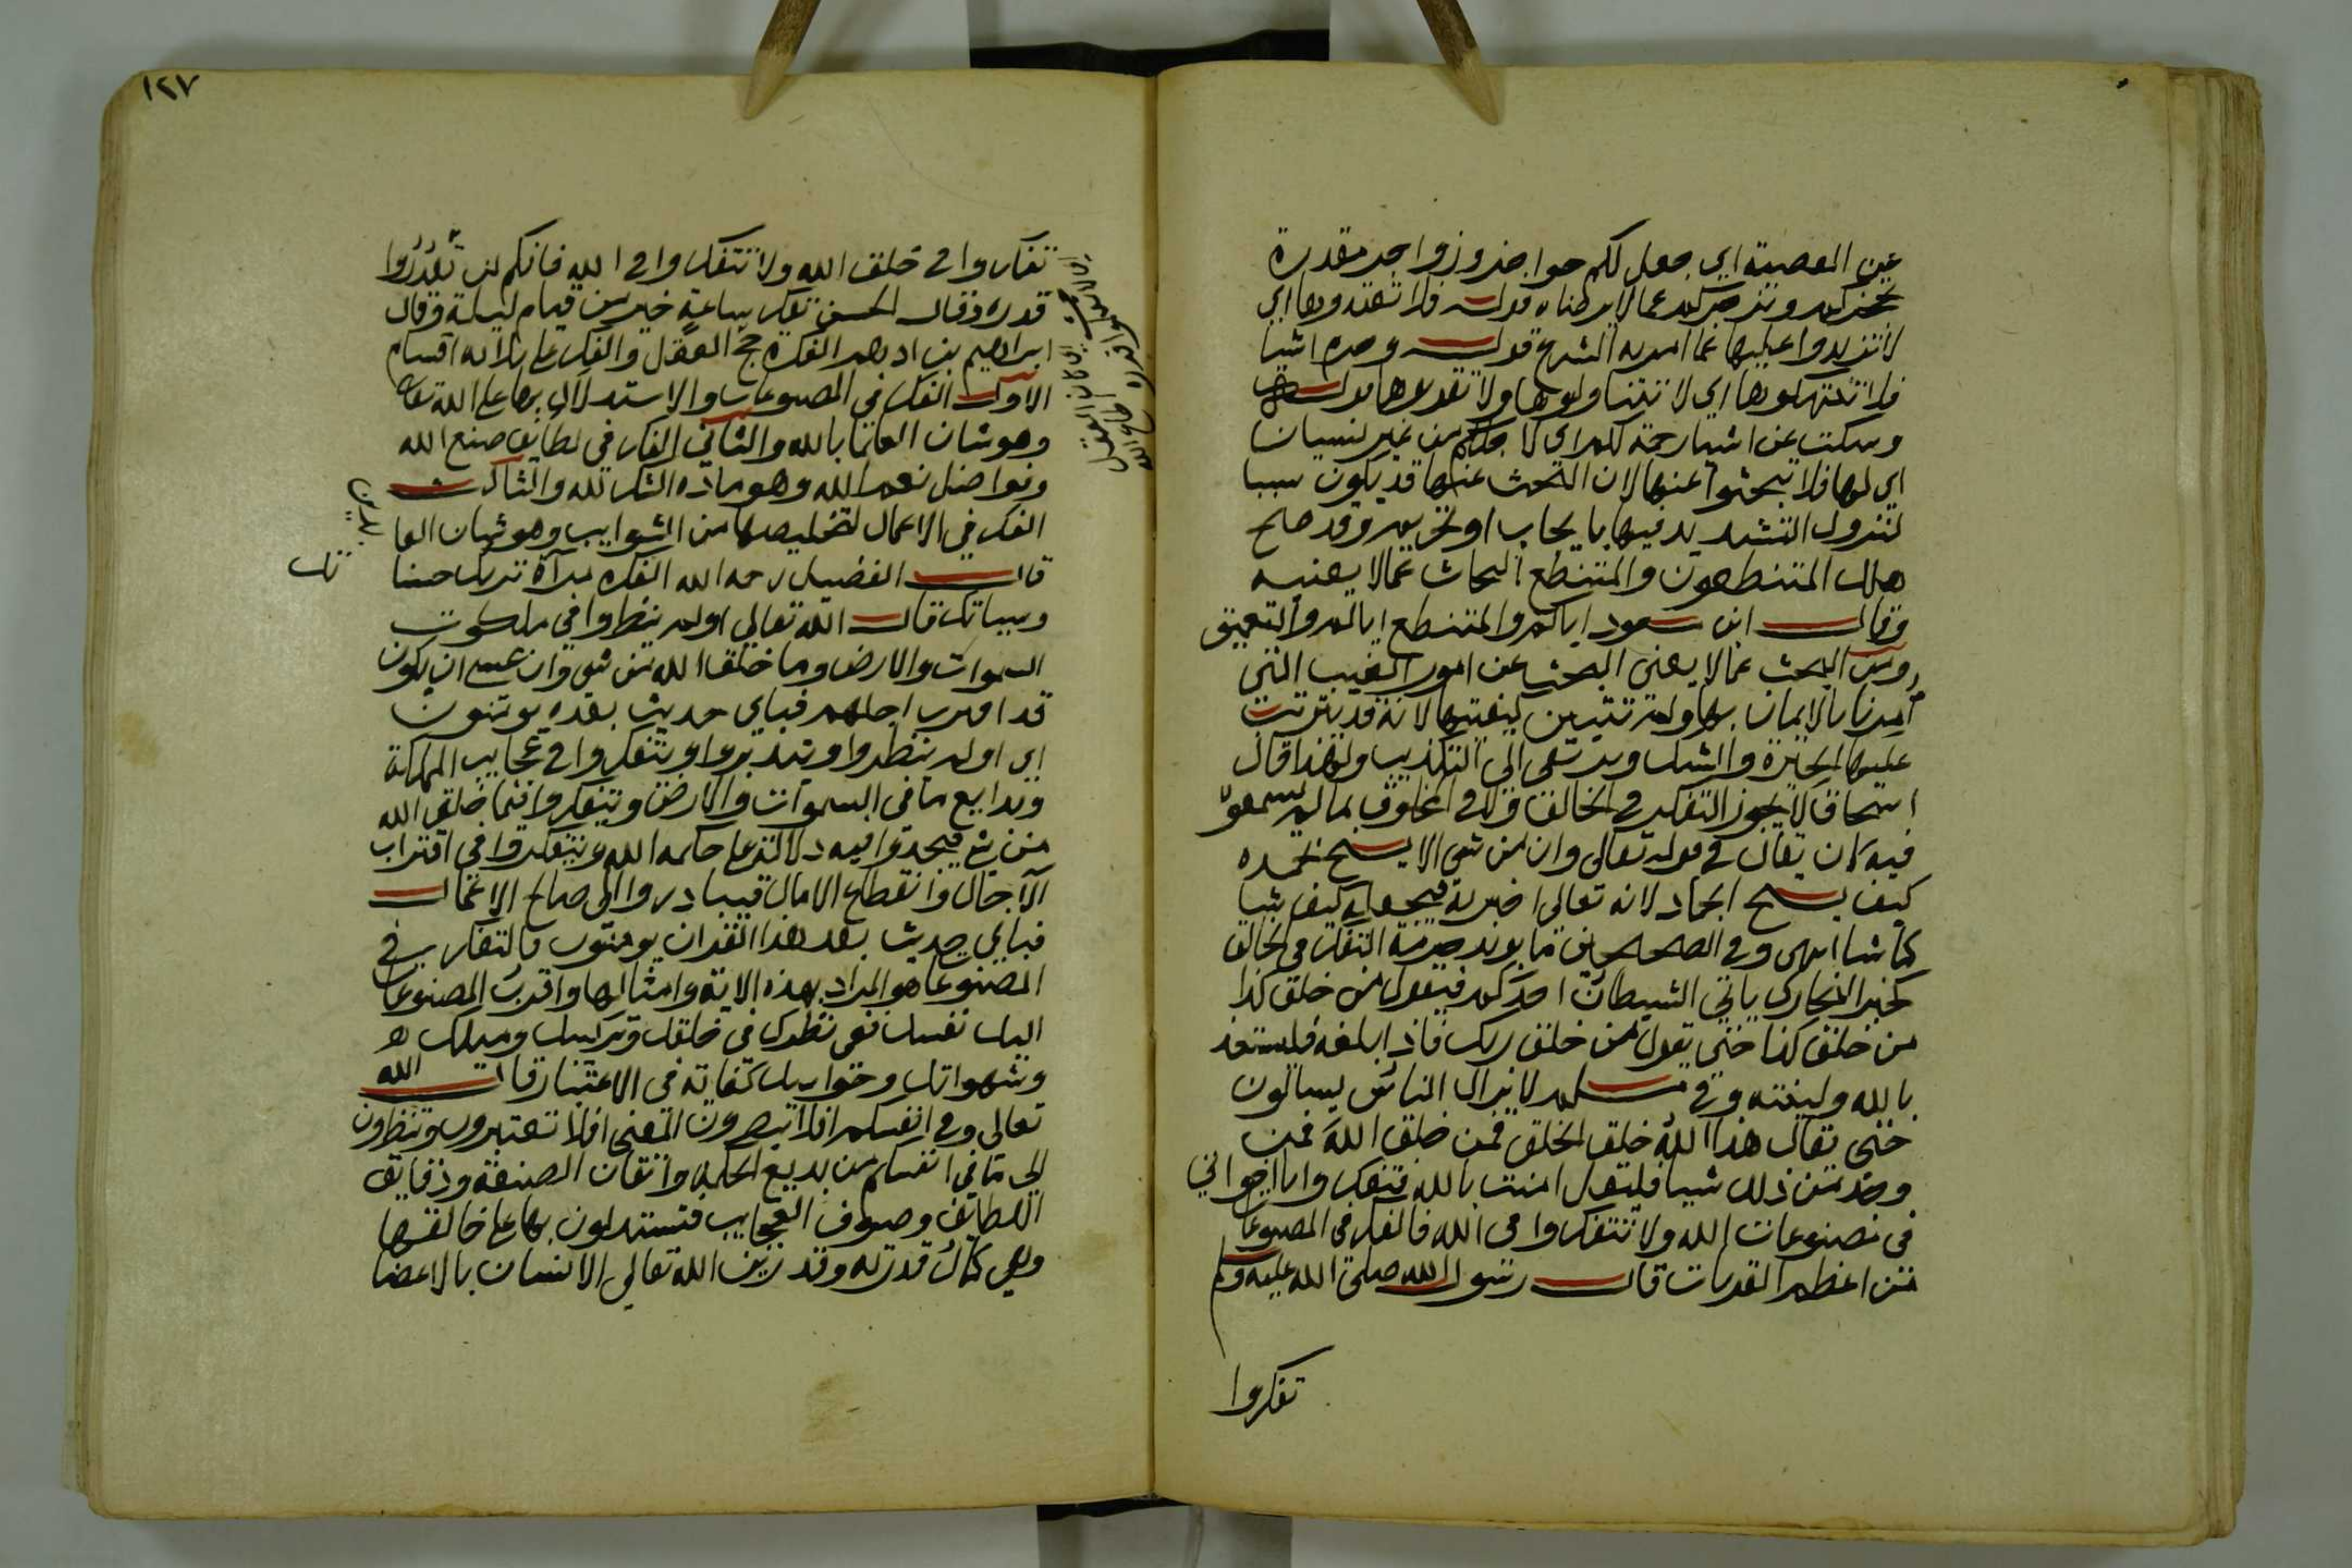 عن المعصية اي جعل لكم حواجز وزواجر مقدرة
تحجزكم وتزجركم عما لا يرضاه قوله فلا تعتدوها اي
لا تزيدوا عليها عما امر به الشرع قوله وحرم اشيا
فلا تنتهكوها اي لا تتناولوها ولا تقربوها قوله
وسكت عن اشيا رحمة لكم اي لاجلكم من غير نسيان
اي لها فلا تبحثوا عنها لان البحث عنها قد يكون سببا
لنزول التشديد فيها بايجاب او تحريم وقد صح
هلك المتنطعون والمتنطع البحاث عما لا يعنيه
وقال ابن مسعود اياكم والتنطع اياكم والتعمق
ومن البحث عما لا يعني البحث عن امور الغيب التي
امرنا بالايمان بها ولم تتبين كيفيتها لانه قد يترتب
عليها الحيرة والشك ويرتقي الى التكذيب ولهذا قال
اسحاق لا يجوز التفكر في الخالق ولا في المخلوق بما لم يسمعوا
فيه كان يقال في قوله تعالى وان من شي الا يسبح بحمده
كيف يسبح الجماد لانه تعالى اخبر به فيجعله كيف شا
كما شا انتهى وفي الصحيحين ما يويد حرمة التفكر في الخالق
كخبر البخاري ياتي الشيطان احدكم فيقول من خلق كذا
من خلق كذا حتى يقول من خلق ربك فاذا بلغه فليستعذ
بالله ولينته وفي مسلم لا يزال الناس يسالون
حتى يقال هذا الله خلق الخلق فمن خلق الله فمن
وجد من ذلك شيا فليقل امنت بالله فتفكروا يا اخواني
في مصنوعات الله ولا تتفكروا في الله فالفكر في المصنوعات
من اعظم القربات قال رسول الله صلى الله عليه وسلم
تفكروا
١٢٧
تفكروا في خلق الله ولا تتفكروا في الله فانكم لن تقدروا
قدره وقال الحسن تفكر ساعة خير من قيام ليلة وقال
ابراهيم بن ادهم الفكرة مخ العقل والفكر على ثلاثه اقسام
الاول الفكر في المصنوعات والاستدلال بها على الله تعالى
وهو شان العلما بالله والثاني الفكر في لطايف صنع الله
وفواضل نعم الله وهو مادة الشكر لله والثالث
الفكر في الاعمال لتخليصها من الشوايب وهو شان العا
بدين
قال الفضيل رحمه الله الفكرة مرآة تريك حسنا
تك
وسيياتك قال الله تعالى اولم ينظروا في ملكوت
السموات والارض وما خلق الله من شي وان عسى ان يكون
قد اقترب اجلهم فباي حديث بعده يومنون
اي اولم ينظروا ويتدبروا ويتفكروا في عجايب المملكة
وبدايع ما في السموات والارض ويتفكروا فيما خلق الله
من شي فيجدوا فيه دلالة على حكمه الله ويتفكروا في اقتراب
الآجال وانقطاع الامال فيبادروا الى صالح الاعمال
فباي حديث بعد هذا القران يومنون فالتفكر في
المصنوعات هو المراد بهذه الاية وامثالها واقرب المصنوعات
اليك نفسك ففي نظرك في خلقك وتركيبك وميلك
وشهواتك وحواسك كفاية في الاعتبار قال الله
تعالى وفي انفسكم افلا تبصرون المعنى افلا تعتبرون وتنظرون
الى ما في انفسكم من بديع الحكمة واتقان الصنعة ودقايق
اللطايف وصنوف العجايب فتستدلون بها على خالقها
وعلى كمال قدرته وقد زين الله تعالى الانسان بالاعضا